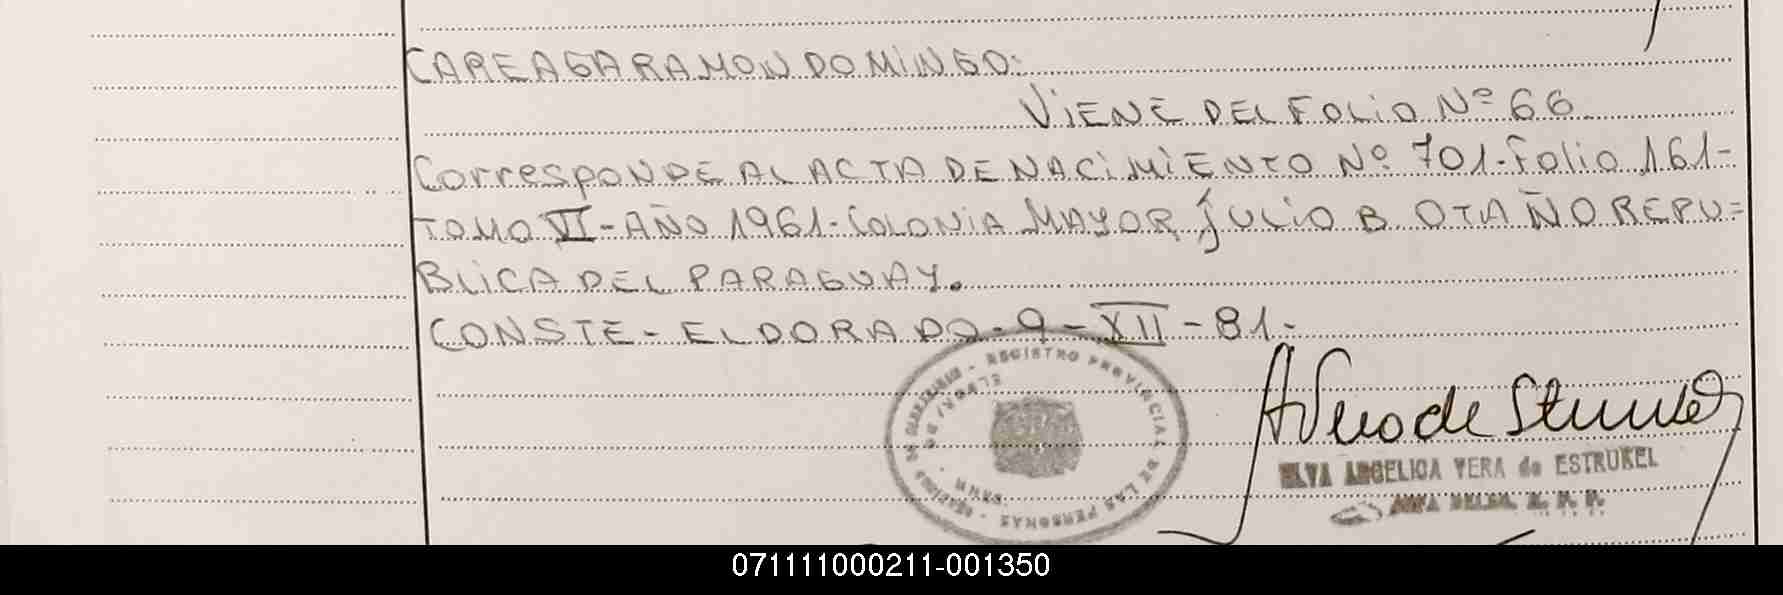 CAREAGA RAMON DOMINGO:
VIENE DEL FOLIO Nº 66
Corresponde AL ACTA DE NACIMIENTO Nº 701-Folio 161-
TOMO VI-AÑO 1961-COLONIA MAYOR JULIO B OTAÑO REPU=
BLICA DEL PARAGUAY.
CONSTE-ELDORADO-9-XII-81-
REGISTRO PROVINCIAL DE LAS PERSONAS
ELDORADO
A Vera de
ELVA ANGELICA VERA de ESTRUKEL
071111000211-001350